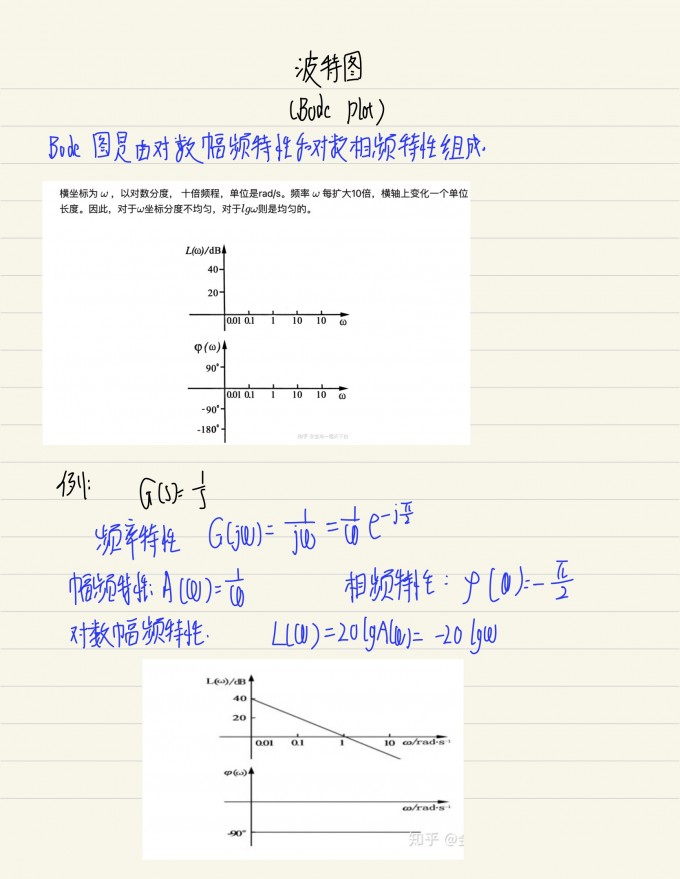 波特图
(Bode plot)
Bode 图是由对数幅频特性和对数相频特性组成.
横坐标为 ω ，以对数分度， 十倍频程，单位是rad/s。频率 ω 每扩大10倍，横轴上变化一个单位
长度。因此，对于ω坐标分度不均匀，对于lgω则是均匀的。
L(ω)/dB
40
20
0.01 0.1 1 10 10 ω
φ(ω)
90°
0.01 0.1 1 10 10 ω
-90°
-180°
例: G(s)=1/s
频率特性 G(jω)= 1/jω = 1/ω e^-jπ/2
幅频特性: A(ω)=1/ω 相频特性: φ(ω)=-π/2
对数幅频特性. L(ω)=20lgA(ω)= -20lgω
L(ω)/dB
40
20
0.01 0.1 1 10 ω/rad·s⁻¹
φ(ω)
ω/rad·s⁻¹
-90°
知乎